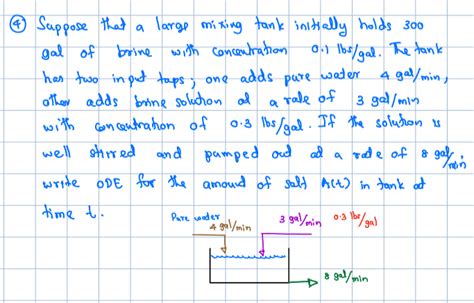 ④ Suppose that a large mixing tank initially holds 300
gal of brine with concentration 0.1 lbs/gal. The tank
has two input taps; one adds pure water 4 gal/min,
other adds brine solution at a rate of 3 gal/min
with concentration of 0.3 lbs/gal. If the solution is
well stirred and pumped out at a rate of 8 gal/min
write ODE for the amount of salt A(t) in tank at
time t.
Pure water
4 gal/min
3 gal/min
0.3 lbs/gal
8 gal/min